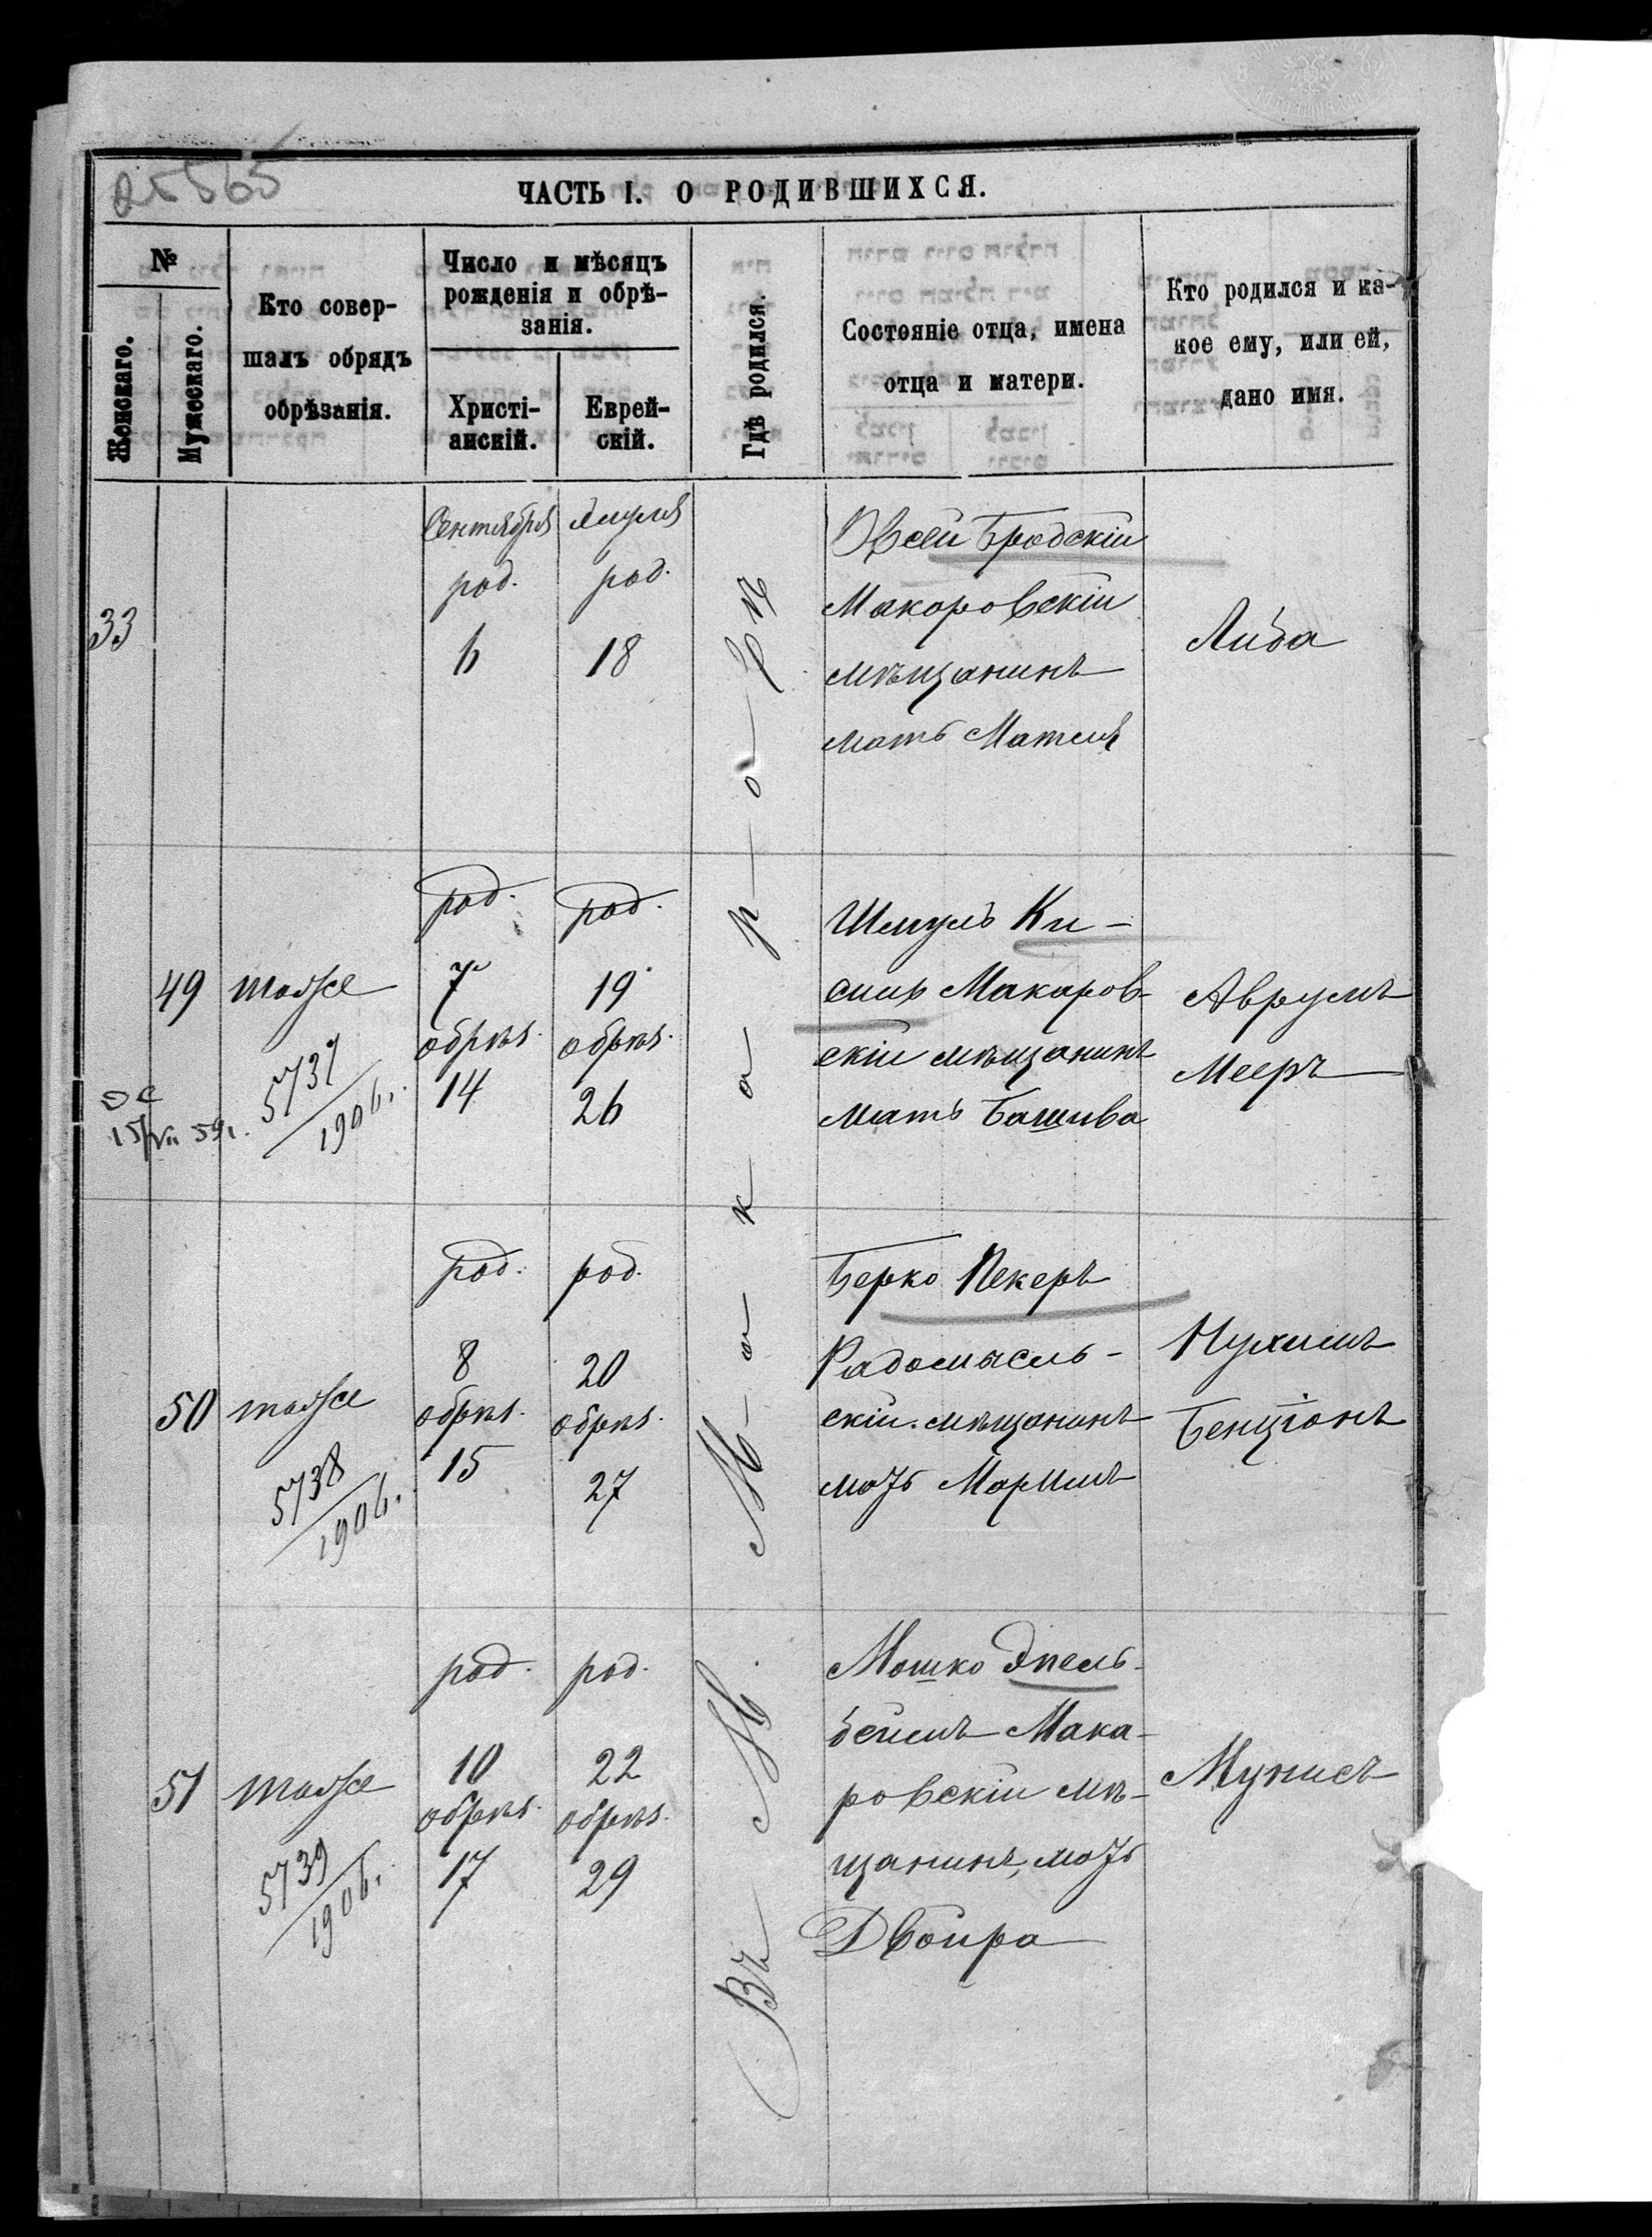 25565
ЧАСТЬ I. О РОДИВШИХСЯ.
№
Женскаго.
Мужескаго.
Кто совер-
шалъ обрядъ
обрѣзанія.
Число и мѣсяцъ
рожденія и обрѣ-
занія.
Христі-
анскій.
Еврей-
скій.
Гдѣ родился.
Состояніе отца, имена
отца и матери.
Кто родился и ка-
кое ему, или ей,
дано имя.
Въ М. Макаровъ
33
Сентября
род.
6
род.
18
Овсей Бродскій
Макаровскій
мѣщанинъ
мать Матля
Либа
49
тоже
5737
1906.
15/VII 59г.
род.
7
обрѣз.
14
род.
19
обрѣз.
26
Шмуль Ки-
Макаров-
скій мѣщанинъ
мать Башива
Аврумъ
Мееръ
50
тоже
5738
1906.
род.
8
обрѣз.
15
род.
20
обрѣз.
27
Берко Пекеръ
Радомысль-
скій мѣщанинъ
мать
Нухимъ
Бенціонъ
51
тоже
5739
1906.
род.
10
обрѣз.
17
род.
22
обрѣз.
29
Мошко Эпель-
беимъ Мака-
ровскій мѣ-
щанинъ, мать
Двойра
Мунисъ